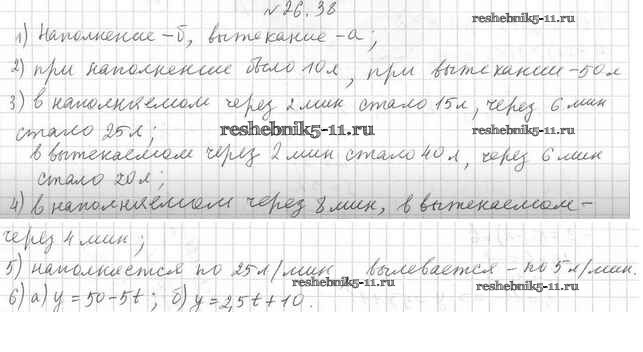 №26.38
reshebnik5-11.ru
1) Наполнение - б, вытекание - а;
2) при наполнение было 10л, при вытекании - 50л
reshebnik5-11.ru
3) в наполняемом через 2 мин стало 15л, через 6 мин
стало 25л;
reshebnik5-11.ru
в вытекаемом через 2 мин стало 40л, через 6 мин
стало 20л;
4) в наполняемом через 8 мин, в вытекаемом -
через 4 мин;
5) наполняется по 25л/мин вылевается - по 5л/мин.
reshebnik5-11.ru
6) а) y = 50-5t; б) y = 2,5t+10.
reshebnik5-11.ru